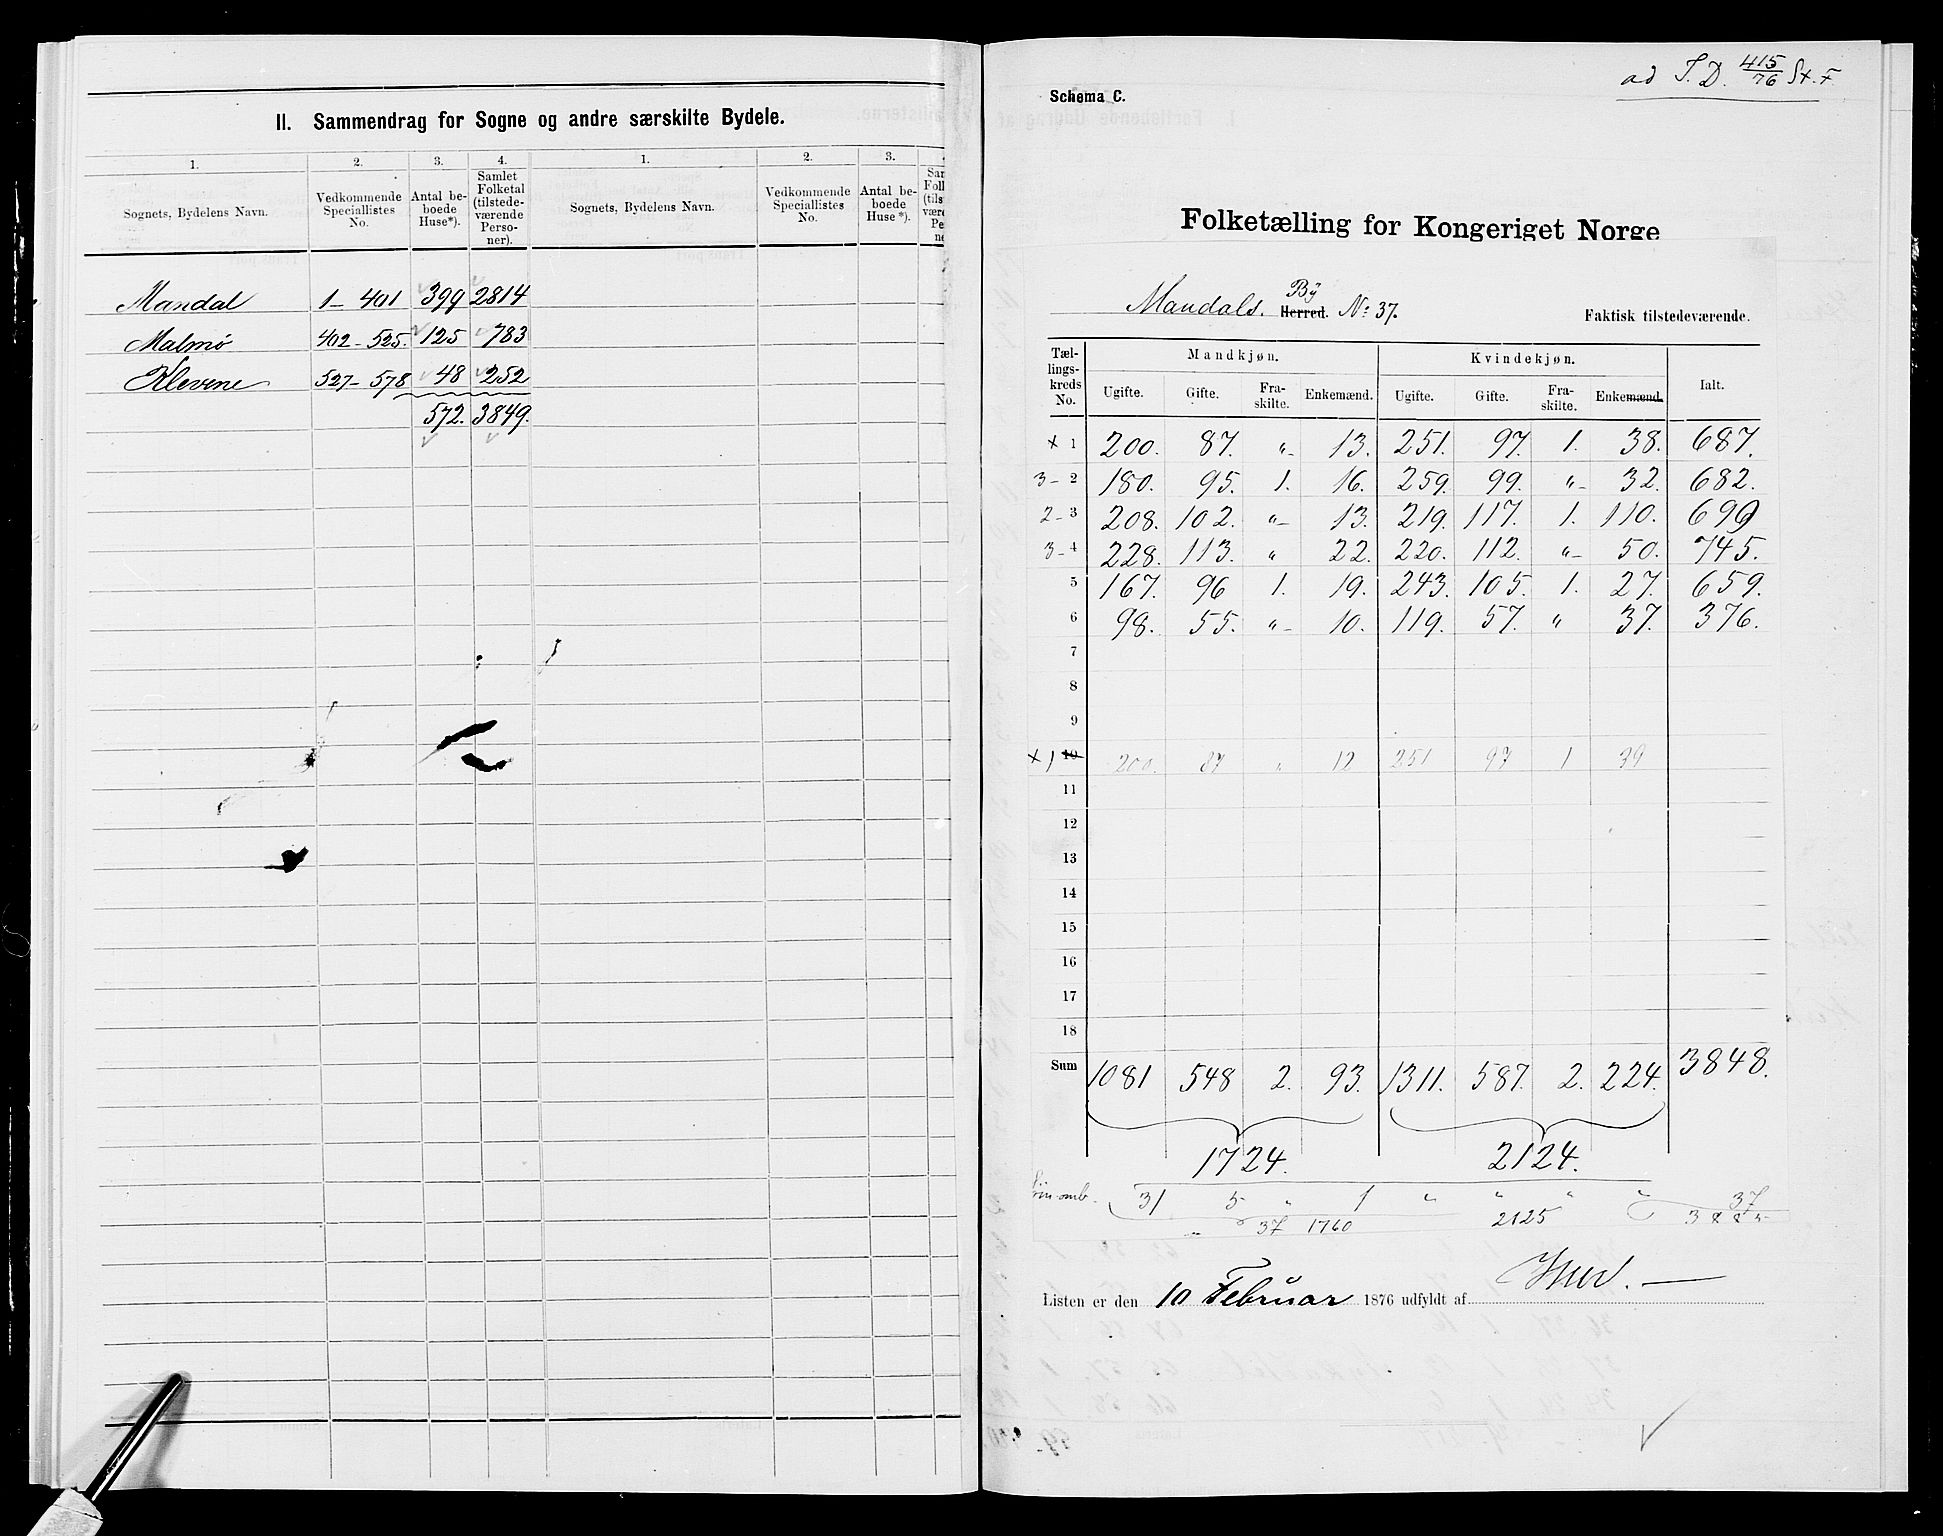 II. Sammendrag for Sogne og andre særskilte Bydele.
1. 2. 3. 4. 1. 2. 3.
Sognets, Bydelens Navn. Vedkommende Speciallistes No. Antal beboede Huse*). Samlet Folketal (tilstedeværende Personer). Sognets, Bydelens Navn. Vedkommende Speciallistes No. Antal beboede Huse*).
Mandal 1-401 399 2814
Malmø 402-525. 125 783
Klevene 527-578 48 252
572. 3849.
ad S.D. 415/76 St. F
Schema C.
Folketælling for Kongeriget Norge
By
Mandals. Herred. No: 37. Faktisk tilstedeværende.
Tællingskreds No. Mandkjøn. Kvindekjøn. Ialt.
Ugifte. Gifte. Fraskilte. Enkemænd. Ugifte. Gifte. Fraskilte. Enkemænd.
x 1 200. 87. „- 13. 251. 97. 1. 38. 687.
3- 2 180. 95. 1. 16. 259. 99. „- 32. 682.
2- 3 208. 102. „- 13. 219. 117. 1. 110. 699
3- 4 228. 113. „ 22. 220. 112. „- 50. 745.
5 167. 96 1. 19. 243. 105. 1. 27. 659.
6 98. 55. „- 10. 119. 57. „ 37. 376.
7
8
9
x 1 10 200. 87 „ 12 251 97 1 39
11
12
13
14
15
16
17
18
Sum 1081 548 2. 93. 1311. 587. 2. 224. 3848.
1724. 2124.
31 5 „ 1 „ „ „ „ 37
37 1760 2125 3885
Listen er den 10 Februar 1876 udfyldt af